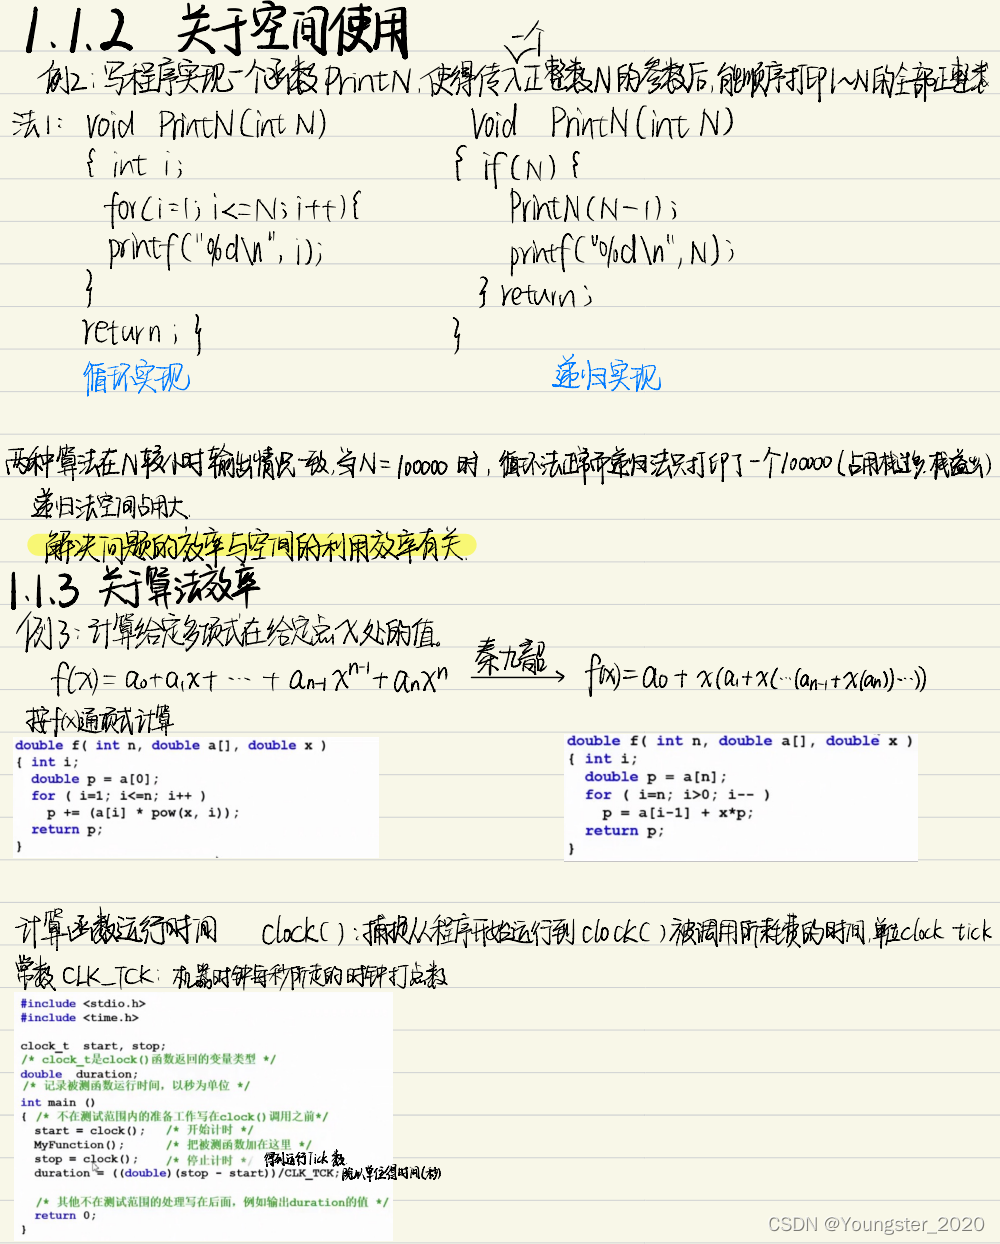 1.1.2 关于空间使用
一个
例2:写程序实现一个函数PrintN,使得传入正整数N的参数后,能顺序打印1~N的全部正整数
法1: void PrintN(int N)
{ int i;
for(i=1; i<=N; i++){
printf("%d\n", i);
}
return; }
循环实现
void PrintN(int N)
{ if(N) {
PrintN(N-1);
printf("%d\n", N);
} return;
}
递归实现
两种算法在N较小时输出情况一致,当N=100000时,循环法正常而递归法只打印了一个100000(占用栈过多,栈溢出)
递归法空间占用大
解决问题的效率与空间的利用效率有关.
1.1.3 关于算法效率
例3:计算给定多项式在给定点X处的值。
f(x)=a₀+a₁x+…+aₙ₋₁xⁿ⁻¹+aₙxⁿ 秦九韶 → f(x)=a₀+x(a₁+x(…(aₙ₋₁+x(aₙ))…))
按f(x)通项式计算
double f( int n, double a[], double x )
{ int i;
double p = a[0];
for ( i=1; i<=n; i++ )
p += (a[i] * pow(x, i));
return p;
}
double f( int n, double a[], double x )
{ int i;
double p = a[n];
for ( i=n; i>0; i-- )
p = a[i-1] + x*p;
return p;
}
计算函数运行时间 clock():捕捉从程序开始运行到clock()被调用所耗费的时间,单位clock tick
常数CLK_TCK:机器时钟每秒所走的时钟打点数
#include <stdio.h>
#include <time.h>
clock_t start, stop;
/* clock_t是clock()函数返回的变量类型 */
double duration;
/* 记录被测函数运行时间，以秒为单位 */
int main ()
{ /* 不在测试范围内的准备工作写在clock()调用之前*/
start = clock(); /* 开始计时 */
MyFunction(); /* 把被测函数加在这里 */
stop = clock(); /* 停止计时 */ 得到运行Tick数
duration = ((double)(stop - start))/CLK_TCK; 除以单位得时间(秒)
/* 其他不在测试范围的处理写在后面，例如输出duration的值 */
return 0;
}
CSDN @Youngster_2020